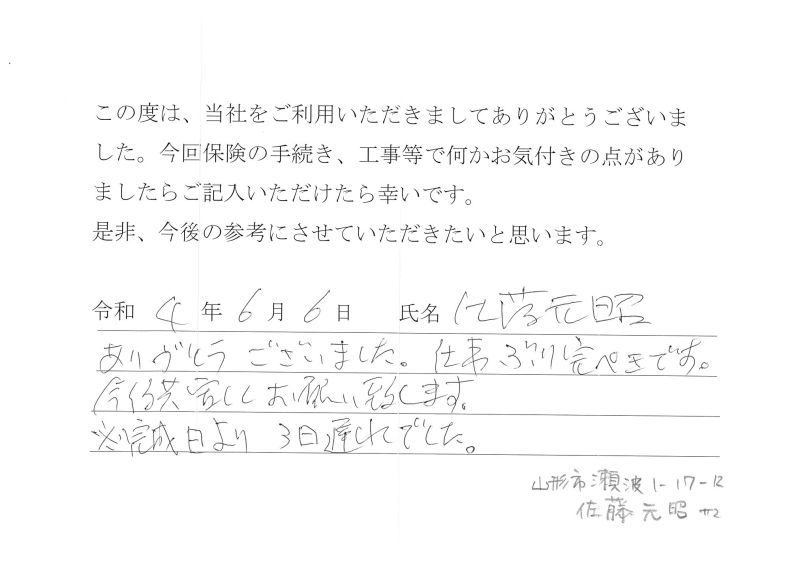 この度は、当社をご利用いただきましてありがとうございま
した。今回保険の手続き、工事等で何かお気付きの点があり
ましたらご記入いただけたら幸いです。
是非、今後の参考にさせていただきたいと思います。
令和 4 年 6 月 6 日 氏名 佐藤元昭
ありがとうございました。仕事ぶり完ぺきです。
今后共宜しくお願い致します。
※完成日より 3日遅れでした。
山形市瀬波1-17-12
佐藤元昭 サマ